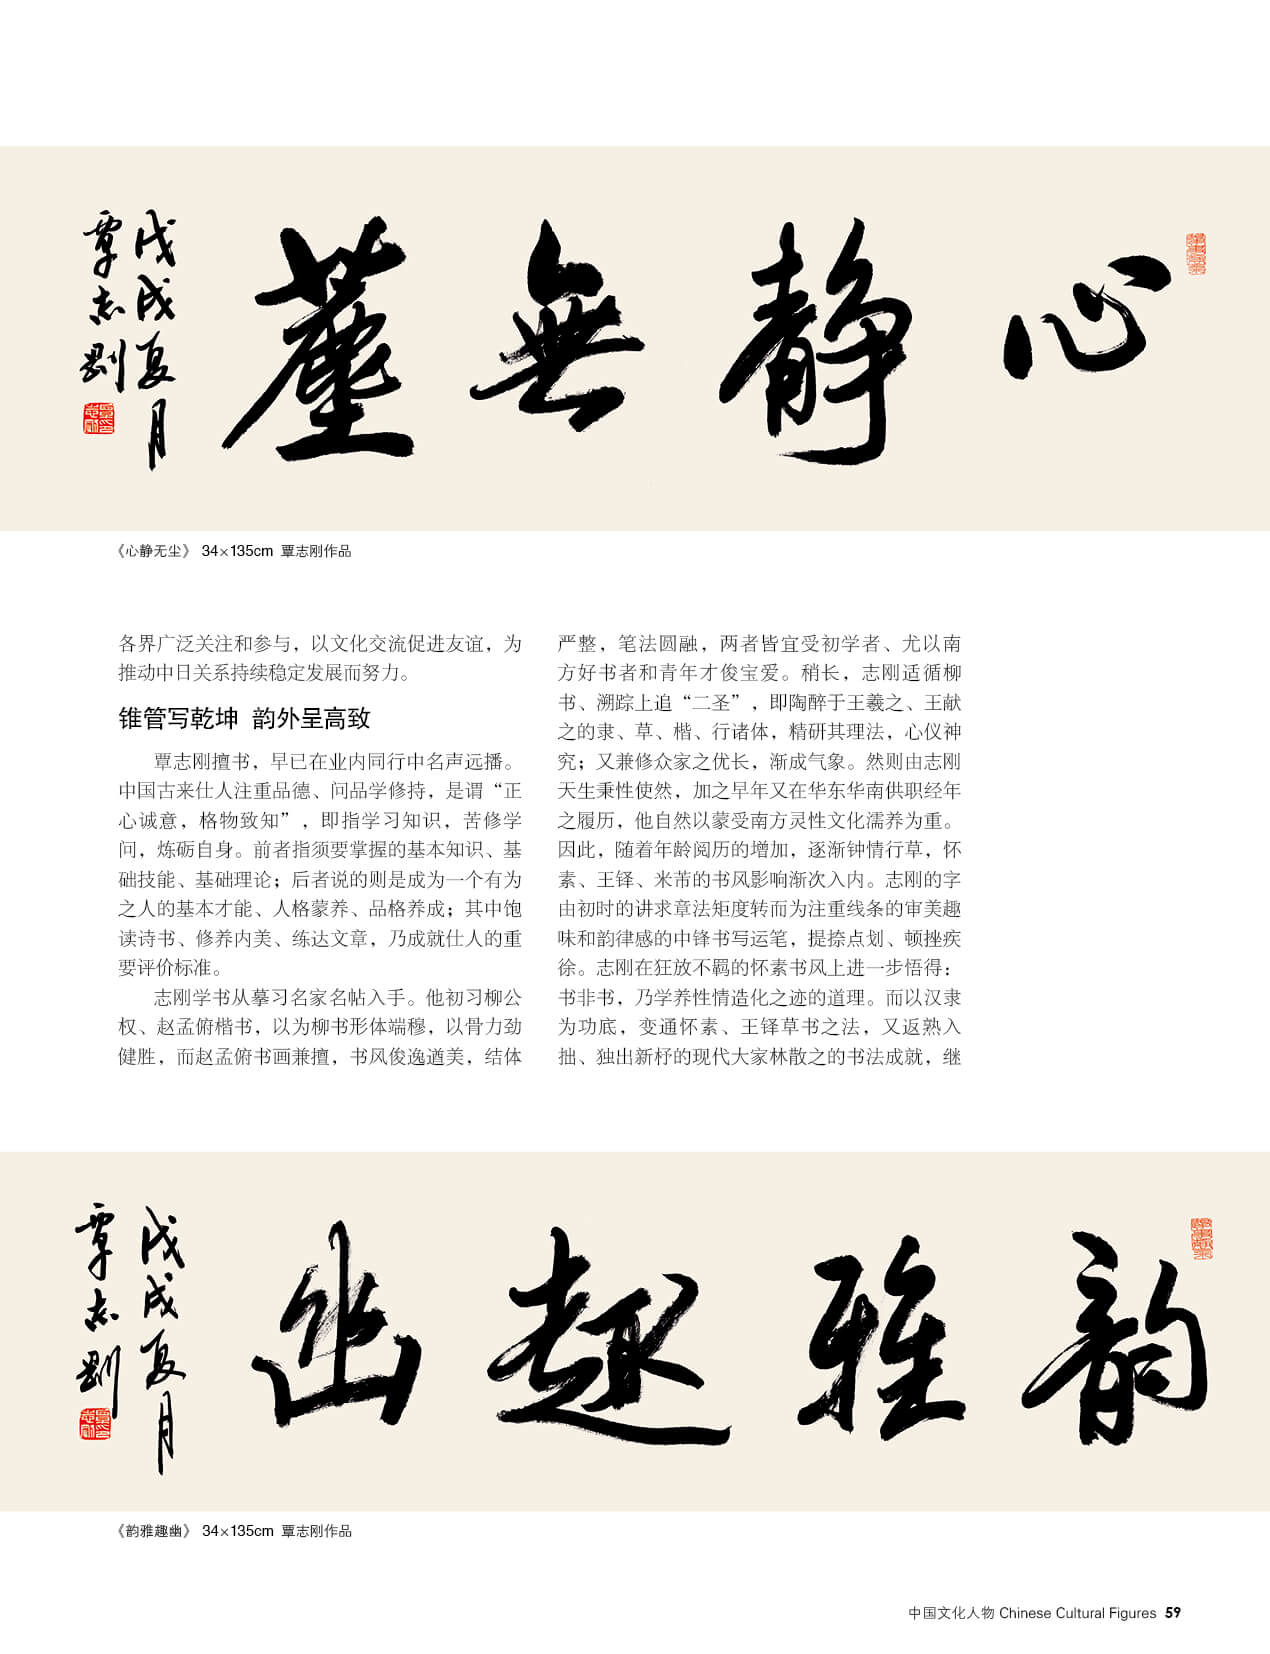 心静無塵
戊戌夏月
覃志刚
《心静无尘》 34×135cm 覃志刚作品
各界广泛关注和参与，以文化交流促进友谊，为
推动中日关系持续稳定发展而努力。
锥管写乾坤 韵外呈高致
覃志刚擅书，早已在业内同行中名声远播。
中国古来仕人注重品德、问品学修持，是谓“正
心诚意，格物致知”，即指学习知识，苦修学
问，炼砺自身。前者指须要掌握的基本知识、基
础技能、基础理论；后者说的则是成为一个有为
之人的基本才能、人格蒙养、品格养成；其中饱
读诗书、修养内美、练达文章，乃成就仕人的重
要评价标准。
志刚学书从摹习名家名帖入手。他初习柳公
权、赵孟俯楷书，以为柳书形体端穆，以骨力劲
健胜，而赵孟俯书画兼擅，书风俊逸遒美，结体
严整，笔法圆融，两者皆宜受初学者、尤以南
方好书者和青年才俊宝爱。稍长，志刚适循柳
书、溯踪上追“二圣”，即陶醉于王羲之、王献
之的隶、草、楷、行诸体，精研其理法，心仪神
究；又兼修众家之优长，渐成气象。然则由志刚
天生秉性使然，加之早年又在华东华南供职经年
之履历，他自然以蒙受南方灵性文化濡养为重。
因此，随着年龄阅历的增加，逐渐钟情行草，怀
素、王铎、米芾的书风影响渐次入内。志刚的字
由初时的讲求章法矩度转而为注重线条的审美趣
味和韵律感的中锋书写运笔，提捺点划、顿挫疾
徐。志刚在狂放不羁的怀素书风上进一步悟得：
书非书，乃学养性情造化之迹的道理。而以汉隶
为功底，变通怀素、王铎草书之法，又返熟入
拙、独出新杼的现代大家林散之的书法成就，继
韵雅趣幽
戊戌夏月
覃志刚
《韵雅趣幽》 34×135cm 覃志刚作品
中国文化人物 Chinese Cultural Figures 59